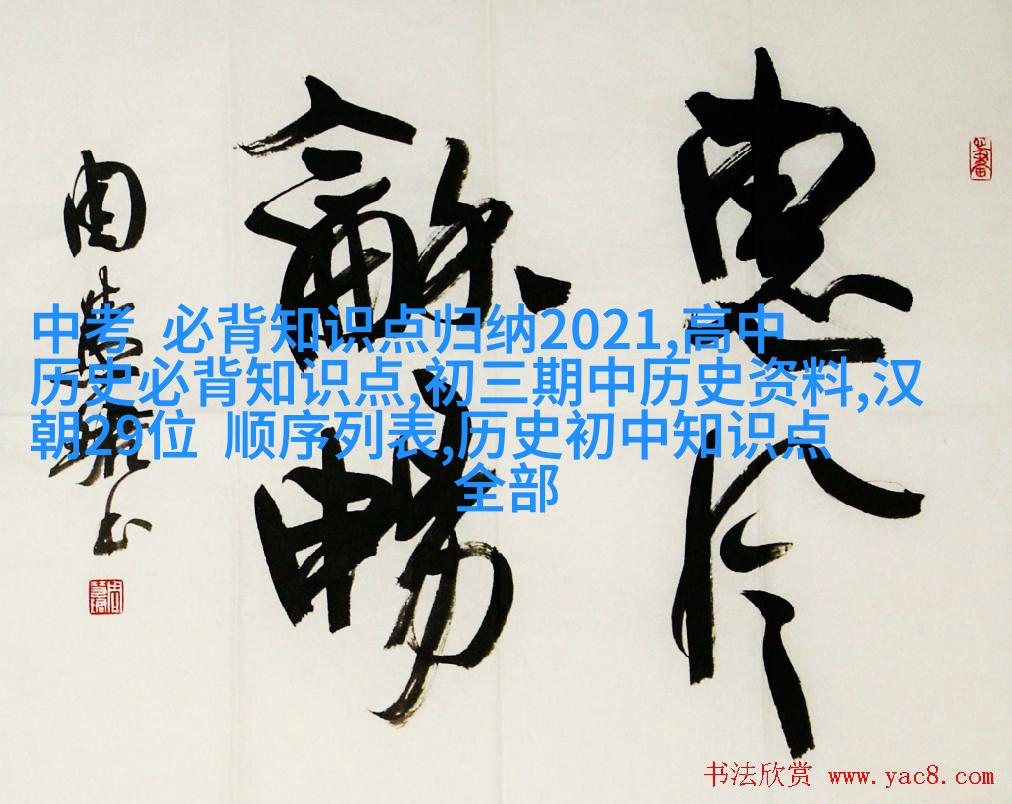 惠风
龢暢
周慧珺书
中考 必背知识点归纳2021,高中
历史必背知识点,初三期中历史资料,汉
朝29位 顺序列表,历史初中知识点
全部
书法欣赏 www.yac8.com